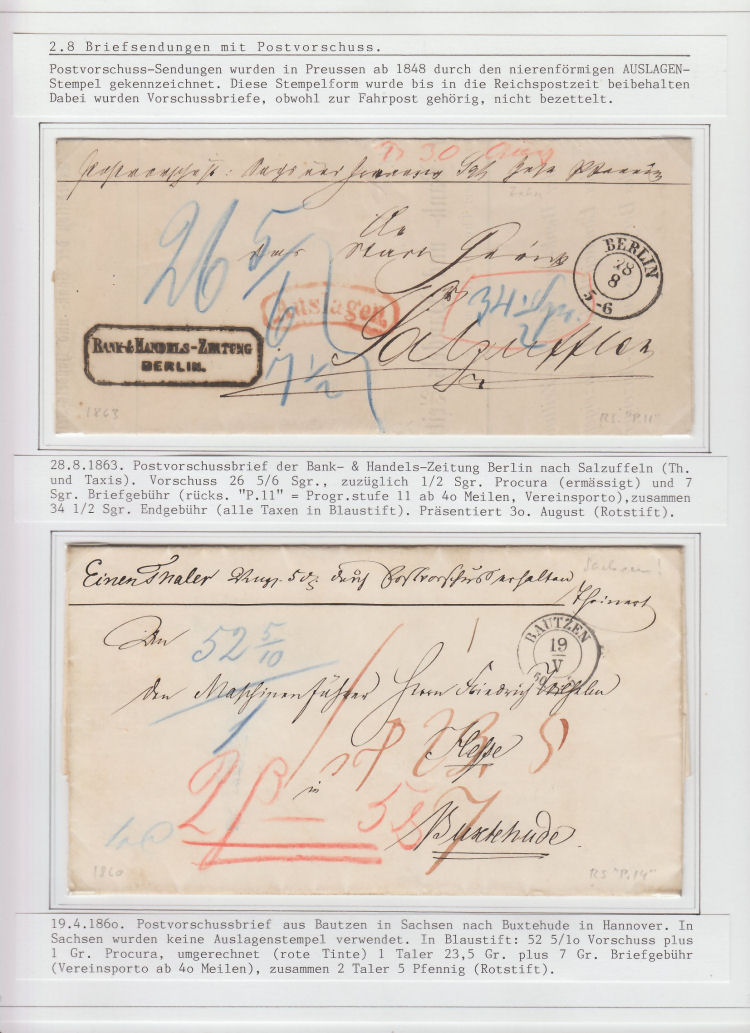 2.8 Briefsendungen mit Postvorschuss.
Postvorschuss-Sendungen wurden in Preussen ab 1848 durch den nierenförmigen AUSLAGEN-
Stempel gekennzeichnet. Diese Stempelform wurde bis in die Reichspostzeit beibehalten
Dabei wurden Vorschussbriefe, obwohl zur Fahrpost gehörig, nicht bezettelt.
30
Postvorschuß:
26 5/6
BERLIN
28
8
5-6
Auslagen.
34
BANK-& HANDELS-ZEITUNG
BERLIN.
7 1/2
Salzufflen
1863
RS. "P.11"
28.8.1863. Postvorschussbrief der Bank- & Handels-Zeitung Berlin nach Salzuffeln (Th.
und Taxis). Vorschuss 26 5/6 Sgr., zuzüglich 1/2 Sgr. Procura (ermässigt) und 7
Sgr. Briefgebühr (rücks. "P.11" = Progr.stufe 11 ab 4o Meilen, Vereinsporto),zusammen
34 1/2 Sgr. Endgebühr (alle Taxen in Blaustift). Präsentiert 3o. August (Rotstift).
Sachsen!
Einen Thaler durch Postvorschuss erhalten
BAUTZEN
19
V
52 5/10
1
den Maschinenführer Herrn Friedrich Wilhelm
Hesse
in
2 5
Buxtehude
1860
RS "P.14"
19.4.186o. Postvorschussbrief aus Bautzen in Sachsen nach Buxtehude in Hannover. In
Sachsen wurden keine Auslagenstempel verwendet. In Blaustift: 52 5/1o Vorschuss plus
1 Gr. Procura, umgerechnet (rote Tinte) 1 Taler 23,5 Gr. plus 7 Gr. Briefgebühr
(Vereinsporto ab 4o Meilen), zusammen 2 Taler 5 Pfennig (Rotstift).